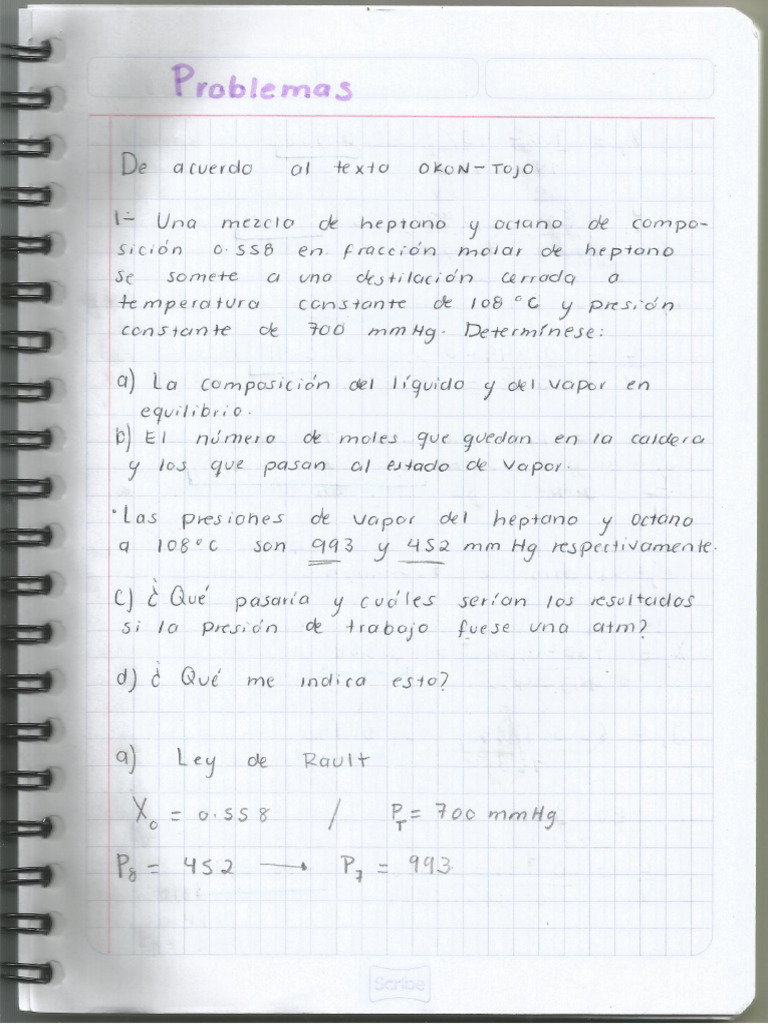 Problemas
De acuerdo al texto OKON-TOJO
1- Una mezcla de heptano y octano de compo-
sición 0.558 en fracción molar de heptano
se somete a una destilación cerrada a
temperatura constante de 108 °C y presión
constante de 700 mmHg. Determínese:
a) La composición del líquido y del vapor en
equilibrio.
b) El número de moles que quedan en la caldera
y los que pasan al estado de vapor.
·Las presiones de vapor del heptano y octano
a 108°C son 993 y 452 mm Hg respectivamente.
c) ¿Qué pasaría y cuáles serían los resultados
si la presión de trabajo fuese una atm?
d) ¿Qué me indica esto?
a) Ley de Rault
X₀ = 0.558 / P_T = 700 mmHg
P₈ = 452 → P₇ = 993
Scribe